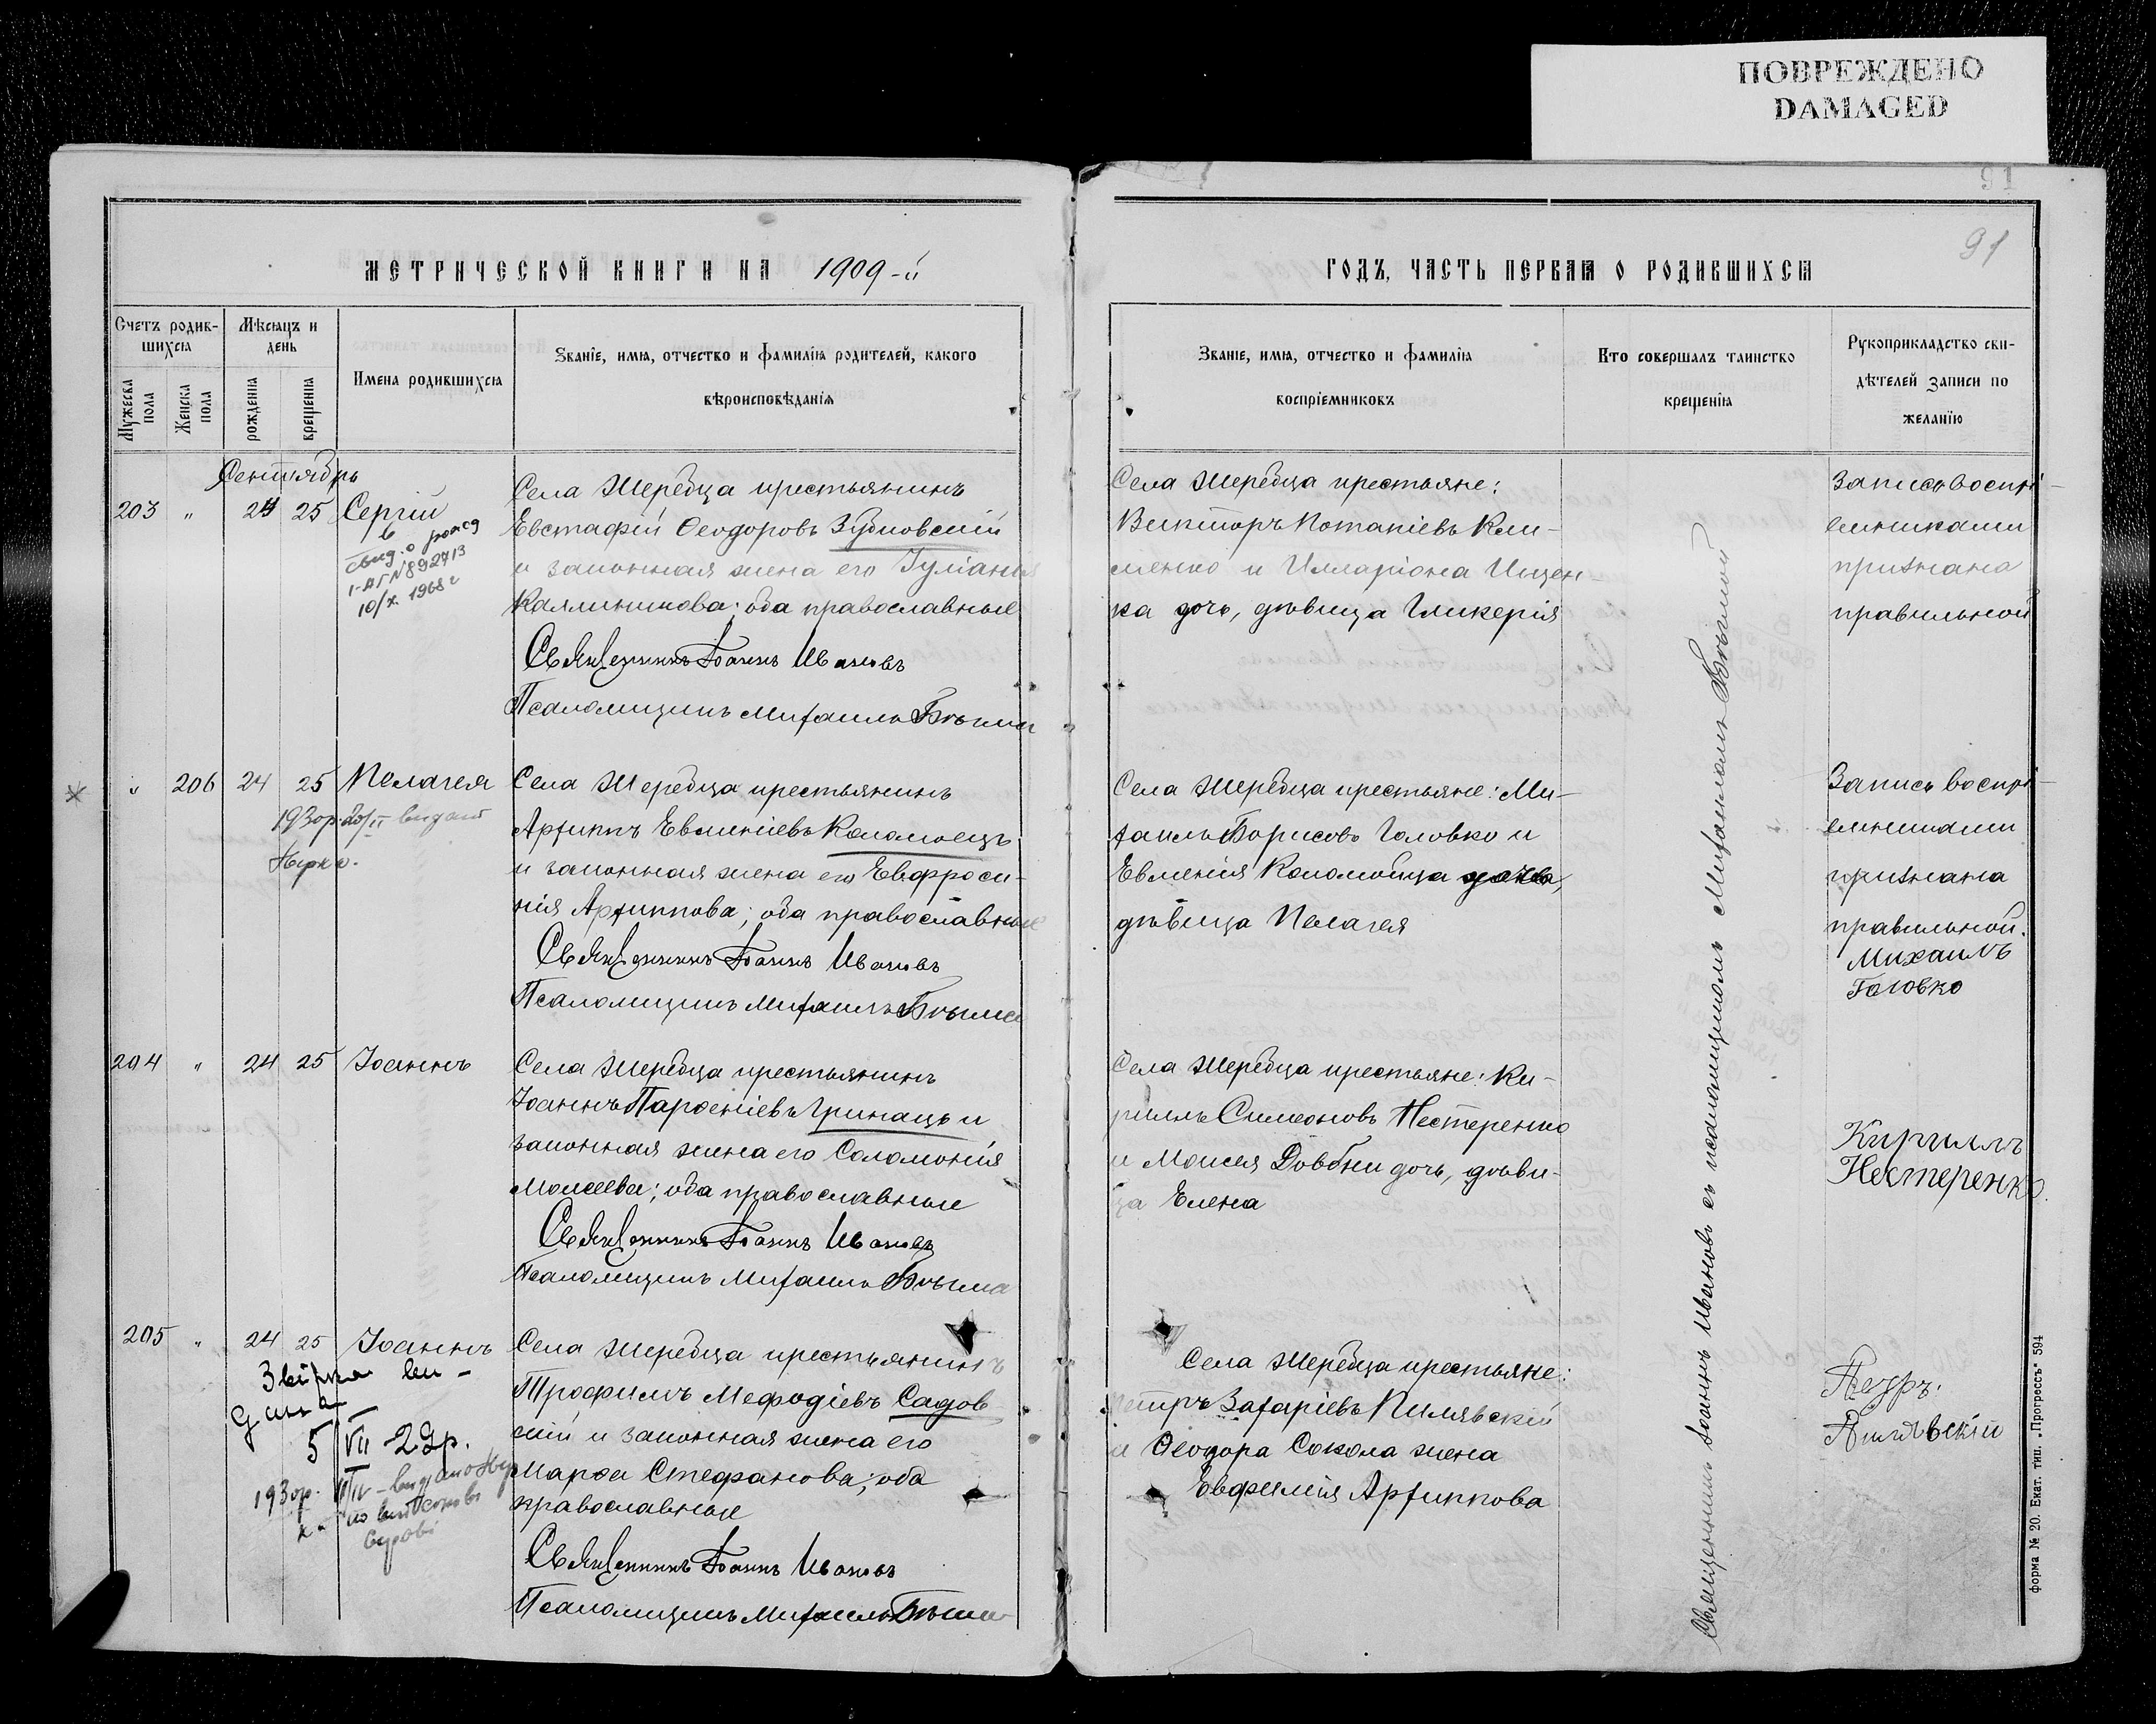 ПОВРЕЖДЕНО
DAMAGED
91
91
МЕТРИЧЕСКОЙ КНИГИ НА 1909-й
ГОДЪ, ЧАСТЬ ПЕРВАЯ О РОДИВШИХСЯ
Счетъ родив-
шихся
Мужеска пола
Женска пола
Мѣсяцъ и
день
рожденія
крещенія
Имена родившихся
Званіе, имя, отчество и фамилія родителей, какого
вѣроисповѣданія
Званіе, имя, отчество и фамилія
воспріемниковъ
Кто совершалъ таинство
крещенія
Рукоприкладство сви-
дѣтелей записи по
желанію
Сентябрь
203 " 24 25 Сергій
свид. о рожд
I-АГ N892713
10/X 1968 г
Села Жеребца крестьянинъ
Евстафій Ѳеодоровъ Зубковскій
и законная жена его Іуліанія
Каллиникова; оба православные
Священникъ Іоаннъ Ивановъ
Псаломщикъ Михаилъ
Села Жеребца крестьяне:
Викторъ Потапіевъ Кли-
менко и Илларіона Ищен-
ка дочь, дѣвица Гликерія
Запись воспрі-
емниками
признана
правильной
" 206 24 25 Пелагея
193 р. 20/II видано
Села Жеребца крестьянинъ
Архиппъ Евменіевъ Коломоецъ
и законная жена его Евфроси-
нія Архиппова; оба православные
Священникъ Іоаннъ Ивановъ
Псаломщикъ Михаилъ
Села Жеребца крестьяне: Ми-
хаилъ Борисовъ Головко и
Евменія Коломойца дочь,
дѣвица Пелагея
Запись воспрі-
емниками
признана
правильной.
Михаилъ
Головко
204 " 24 25 Іоаннъ
Села Жеребца крестьянинъ
Іоаннъ Парѳеніевъ Гринацъ и
законная жена его Соломонія
Моисеева; оба православные
Священникъ Іоаннъ Ивановъ
Псаломщикъ Михаилъ
Села Жеребца крестьяне: Ки-
риллъ Симеоновъ Нестеренко
и Моисея Довбни дочь, дѣви-
ца Елена
Кириллъ
Нестеренко.
205 " 24 25 Іоаннъ
5/VII - 2 др.
193 р. видано
Села Жеребца крестьянинъ
Трофимъ Меѳодіевъ Садов
скій и законная жена его
Марѳа Стефанова; оба
православные
Священникъ Іоаннъ Ивановъ
Псаломщикъ Михаилъ
Села Жеребца крестьяне:
Петръ Захаріевъ Пилявскій
и Ѳеодора Сокола жена
Евфимія Архиппова
Петръ.
Пилявскій
Священникъ Іоаннъ Ивановъ съ псаломщикомъ Михаиломъ
форма № 20. Екат. тип. „Прогрессъ" 594